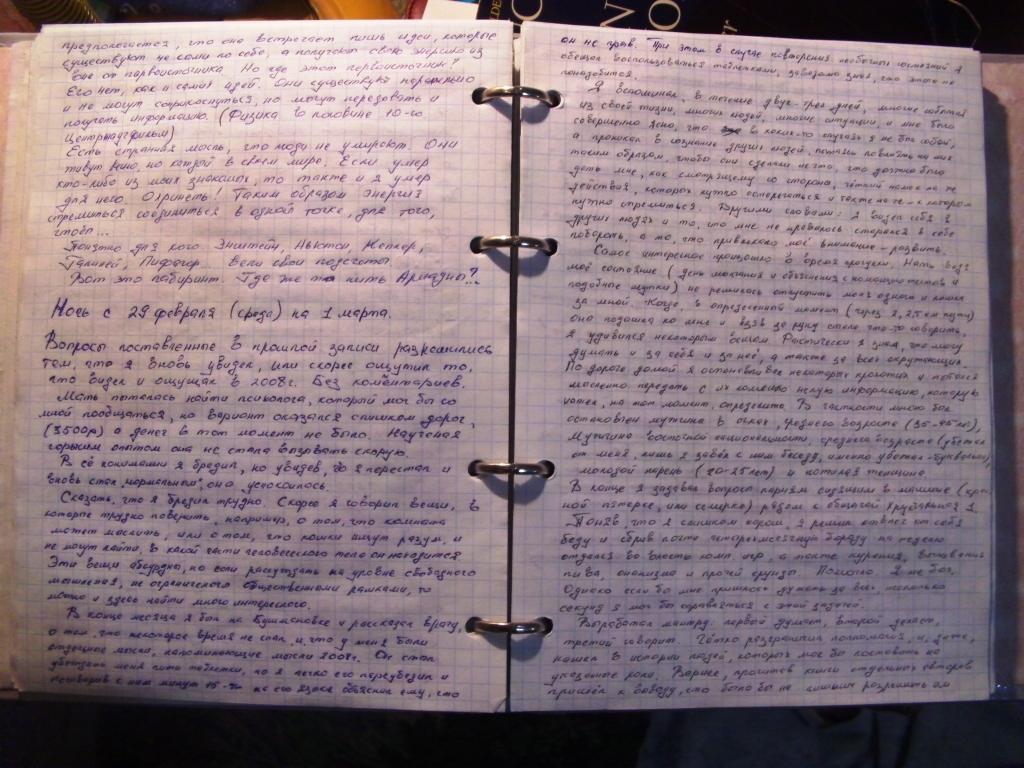 предполагается, что она встречает лишь идеи, которые
существуют не сами по себе, а получают свою энергию из
вне от первоисточника. Но где этот первоисточник?
Его нет, как и самих идей. Они существуют
и не могут соприкоснуться, но могут передовать и
получать информацию. (Физика в половине 10-го
Центрнаучфильм)
Есть странная мысль, что люди не умирают. Они
живут вечно, но каждый в своём мире. Если умер
кто-либо из моих знакомых, то также и я умер
для него. Охринеть! Таким образом энергия
стремиться соединиться в одной точке, для того,
чтобы...
Понятно для кого. Энштейн, Ньютон, Кеплер,
Галилей, Пифагор. Вели свои подсчёты.
Вот это лабиринт. Где же нить Ариадны?..
Ночь с 29 февраля (среда) на 1 марта.
Вопросы поставленные в прошлой записи разрешились
тем, что я вновь увидел, или скорее ощутил то,
что видел и ощущал в 2008г. Без коментариев.
Мать пыталась найти психолога, который мог бы со
мной пообщаться, но вариант оказался слишком дорог,
(3500р) а денег в тот момент не было. Наученая
горьким опытом она не стала вызывать скорую.
В её понимании я бредил, но увидев, что я перестал и
вновь стал „нормальным", она успокоилась.
Сказать, что я бредил трудно. Скорее я говорил вещи, в
которые трудно поверить, например, о том, что комната
может мыслить, или о том, что кошки ищут разум, и
не могут найти, в какой части человеческого тела он находится
Эти вещи абсурдны, но если рассуждать на уровне свободного
мышления, не ограниченого общественными рамками, то
можно и здесь найти много интересного.
В конце месяца я был на Бушмановке и рассказал врачу,
о том, что некоторое время не спал, и, что у меня были
отдельные мысли, напоминающие мысли 2008г. Он стал
убеждать меня пить таблетки, но я легко его переубедил и
поговорив с ним минут 15-20 на его языке объяснил ему, что
он не прав. При этом в случае повторения необычных состояний я
обещал воспользоваться таблетками, заведомо зная, что этого не
понадобится.
Я вспоминал, в течение двух-трёх дней, многие события
из своей жизни, многих людей, многие ситуации, и мне было
совершенно ясно, что в каких-то случаях я не был собой,
а проникал в сознание других людей, пытаясь повлиять на них
таким образом, чтобы они сделали нечто, что должно было
дать мне, как смотрящему со стороны, чёткий намёк на те
действия, которых нужно остерегаться и также на те - к которым
нужно стремиться. Другими словами: я видел себя в
других людях и то, что мне не нравилось старался в себе
побороть, а то, что привлекало моё внимание - развить.
Самое интересное произошло в время прогулки. Мать видя
моё состояние (день молчания и объяснения с помощью жестов и
подобные шутки) не решилась отпустить меня одного и пошла
за мной. Когда, в определенный момент (через 2, 2,5 км пути)
она подошла ко мне и взяв за руку стала что-то говорить,
я удивился некоторым вещам. Фактически я знал, что могу
думать и за себя и за неё, а также за всех окружающих.
По дороге домой я останавливал некоторых прохожих и пытался
мысленно передать с их помощью некую информацию, которую
успел, на тот момент, определить. В частности мною был
остановлен мужчина в очках, среднего возраста (35-45 лет),
мужчина восточной национальности, среднего возраста (убежал
от меня, лишь я завёл с ним беседу, именно убежал - буквально),
молодой парень (20-25 лет) и пожилая женщина.
В конце я задавал вопросы парням сидящим в машине (крас
ной пятерке, или семерке) рядом с общагой Хрустальной 1.
Поняв, что я слишком хорош, я решил отвлечь от себя
беду и сбрив почти четырехмесячную бороду на неделю
отдался во власть комп. игр, а после курения, выпивания
пива, онанизма и прочей ерунды. Помогло. Я не бог.
Однако если бы мне пришлось думать за всех, несколько
секунд я мог бы справляться с этой задачей.
Выработал мантру: первый думает, второй делает,
третий говорит. Чётко разграничил полномочия, и, даже,
нашёл в истории людей, которых мог бы поставить на
указанные роли. Вернее, прочитав книги отдельных авторов
пришёл к выводу, что было бы не лишним разрешить им